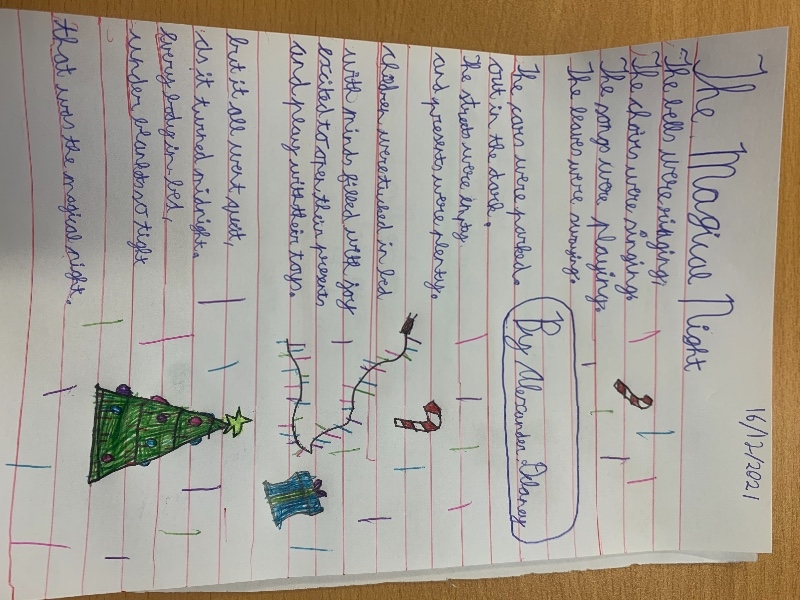 16/12/2021
~The Magical Night
~The bells were ringing,
The choirs were singing,
The songs were playing,
The leaves were swaying.
By Alexander Delaney
The cars were parked.
out in the dark.
The streets were empty
and presents were plenty.
children were tucked in bed
with minds filled with joy
excited to open their presents
and play with their toys.
but it all went quiet,
as it turned midnight.
every body in bed,
under blankets so tight
that was the magical night.